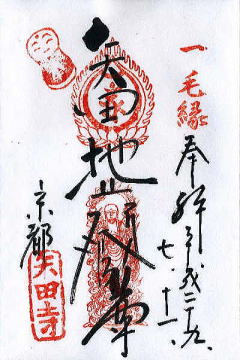 一毛縁
奉拝 平成二十九
七・十一
矢田地蔵尊
京都
矢田寺